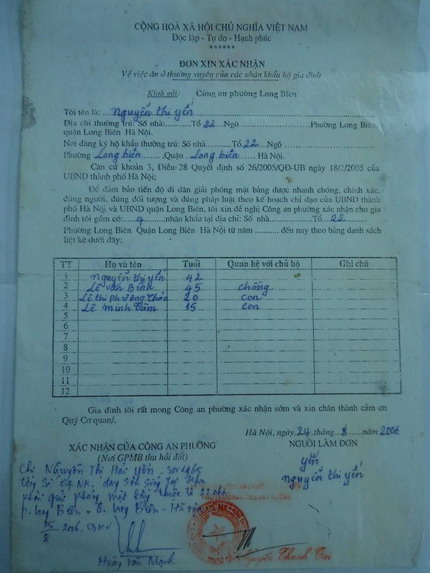 CỘNG HOÀ XÃ HỘI CHỦ NGHĨA VIỆT NAM
Độc lập - Tự do - Hạnh phúc
******
ĐƠN XIN XÁC NHẬN
Về việc ăn ở thường xuyên của các nhân khẩu hộ gia đình
Kính gửi: Công an phường Long Biên
Tôi tên là: Nguyễn thị yến
Địa chỉ thường trú: Số nhà Tổ 22 Ngõ Phường Long Biên
quận Long Biên Hà Nội.
Nơi đăng ký hộ khẩu thường trú: Số nhà Tổ 22 Ngõ
Phường Long biên Quận Long biên Hà Nội.
Căn cứ khoản 3, Điều 28 Quyết định số 26/2005/QĐ-UB ngày 18/2/2005 của
UBND thành phố Hà Nội;
Để đảm bảo tiến độ di dân giải phóng mặt bằng được nhanh chóng, chính xác,
đúng người, đúng đối tượng và đúng pháp luật theo kế hoạch chỉ đạo của UBND thành
phố Hà Nội và UBND quận Long Biên, tôi xin đề nghị Công an phường xác nhận cho gia
đình tôi gồm có: 4 nhân khẩu tại địa chỉ: Số nhà Tổ 22
Phường Long Biên Quận Long Biên Hà Nội từ năm đến nay theo bảng danh sách
liệt kê dưới đây:
TT Họ và tên Tuổi Quan hệ với chủ hộ Ghi chú
1 Nguyễn thị yến 42
2 Lê văn Bình 45 chồng
3 Lê thị phương Thảo 20 con
4 Lê minh Tâm 15 con
5
6
7
8
9
10
11
12
Gia đình tôi rất mong Công an phường xác nhận sớm và xin chân thành cảm ơn
Quý Cơ quan/.
Hà Nội, ngày 24 tháng 8 năm 2006
XÁC NHẬN CỦA CÔNG AN PHƯỜNG
(Nơi GPMB thu hồi đất)
NGƯỜI LÀM ĐƠN
yến
nguyễn thị yến
Chị Nguyễn Thị Hải Yến